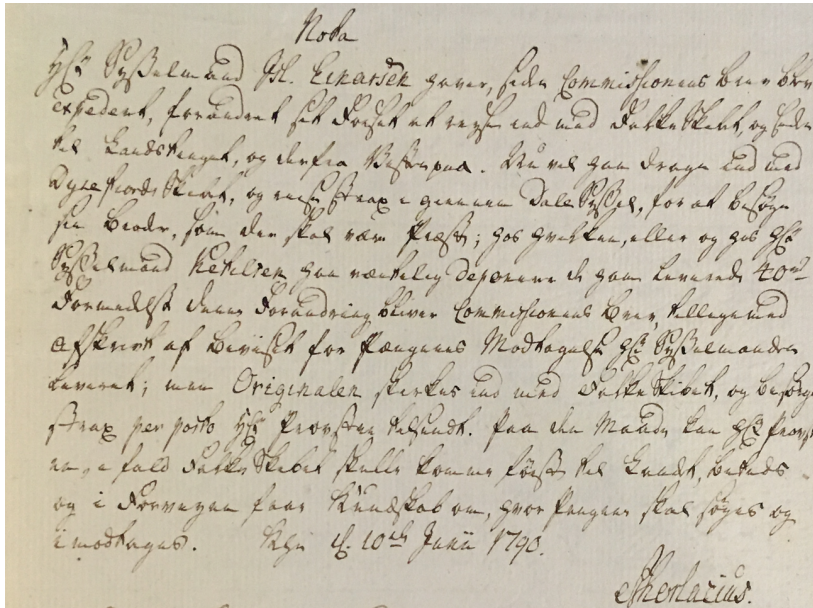 Nota
Hr. Sysselmand Jsl. Einarsen haver, siden Commissionens brev blev
expederet, forandret sit Forset at reyse ind med Falke Skibet, og siden
til Landstinget, og derfra Vesterpaa. Nu vil han drage ind med
Dyrefiords Skibet, og reise strax i giennem Dale Syssel, for at besøge
sin broder, som der skal være Præst; hos hvilken, eller og hos Hr.
Sysselmand Ketilsen han væntelig deponere de ham leverede 40 rd.
Formedelst denne Forandring bliver Commissionens brev tilligemed
afskrivt af beviset for Pængenes Modtagelse Hr. Sysselmanden
leveret; men Originalen skikkes ind med Falke Skibet, og besørges
strax per posto Hr. Provsten tilsendt. Paa den Maade kan Hr. Provst-
en, i fald Falke Skibet skulle komme først til Landt, betids
og i Forveyen faae Kundskab om, hvor Pengene skal søges og
imodtages. Khn d. 10de Junii 1790.
SThorlacius.